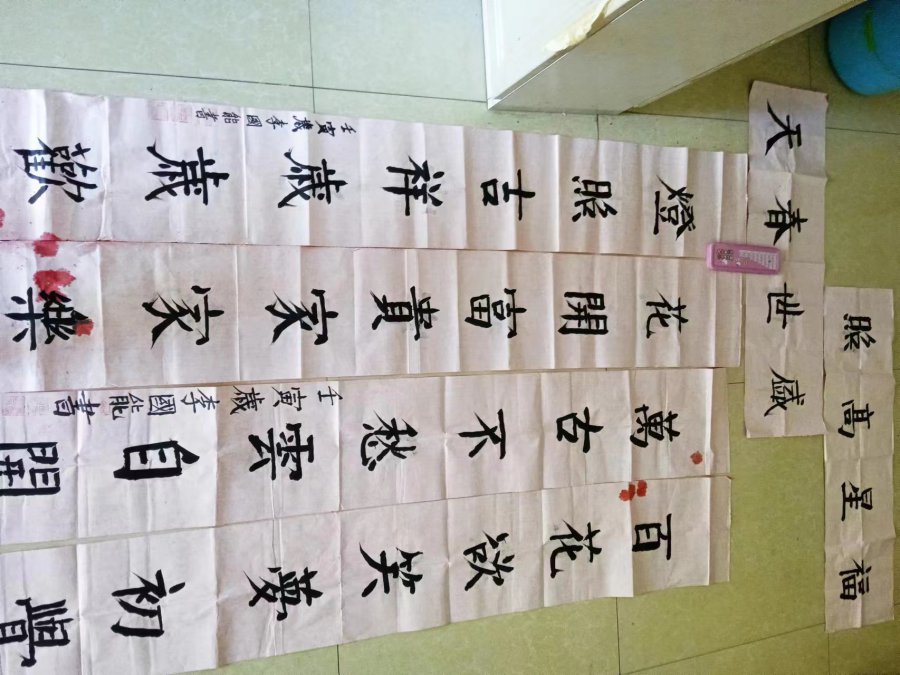 福星高照
盛世春天
百花欲笑夢初覺
萬古不愁雲自開
壬寅歲李國能書
花開富貴家家樂
燈照吉祥歲歲歡
壬寅歲李國能書